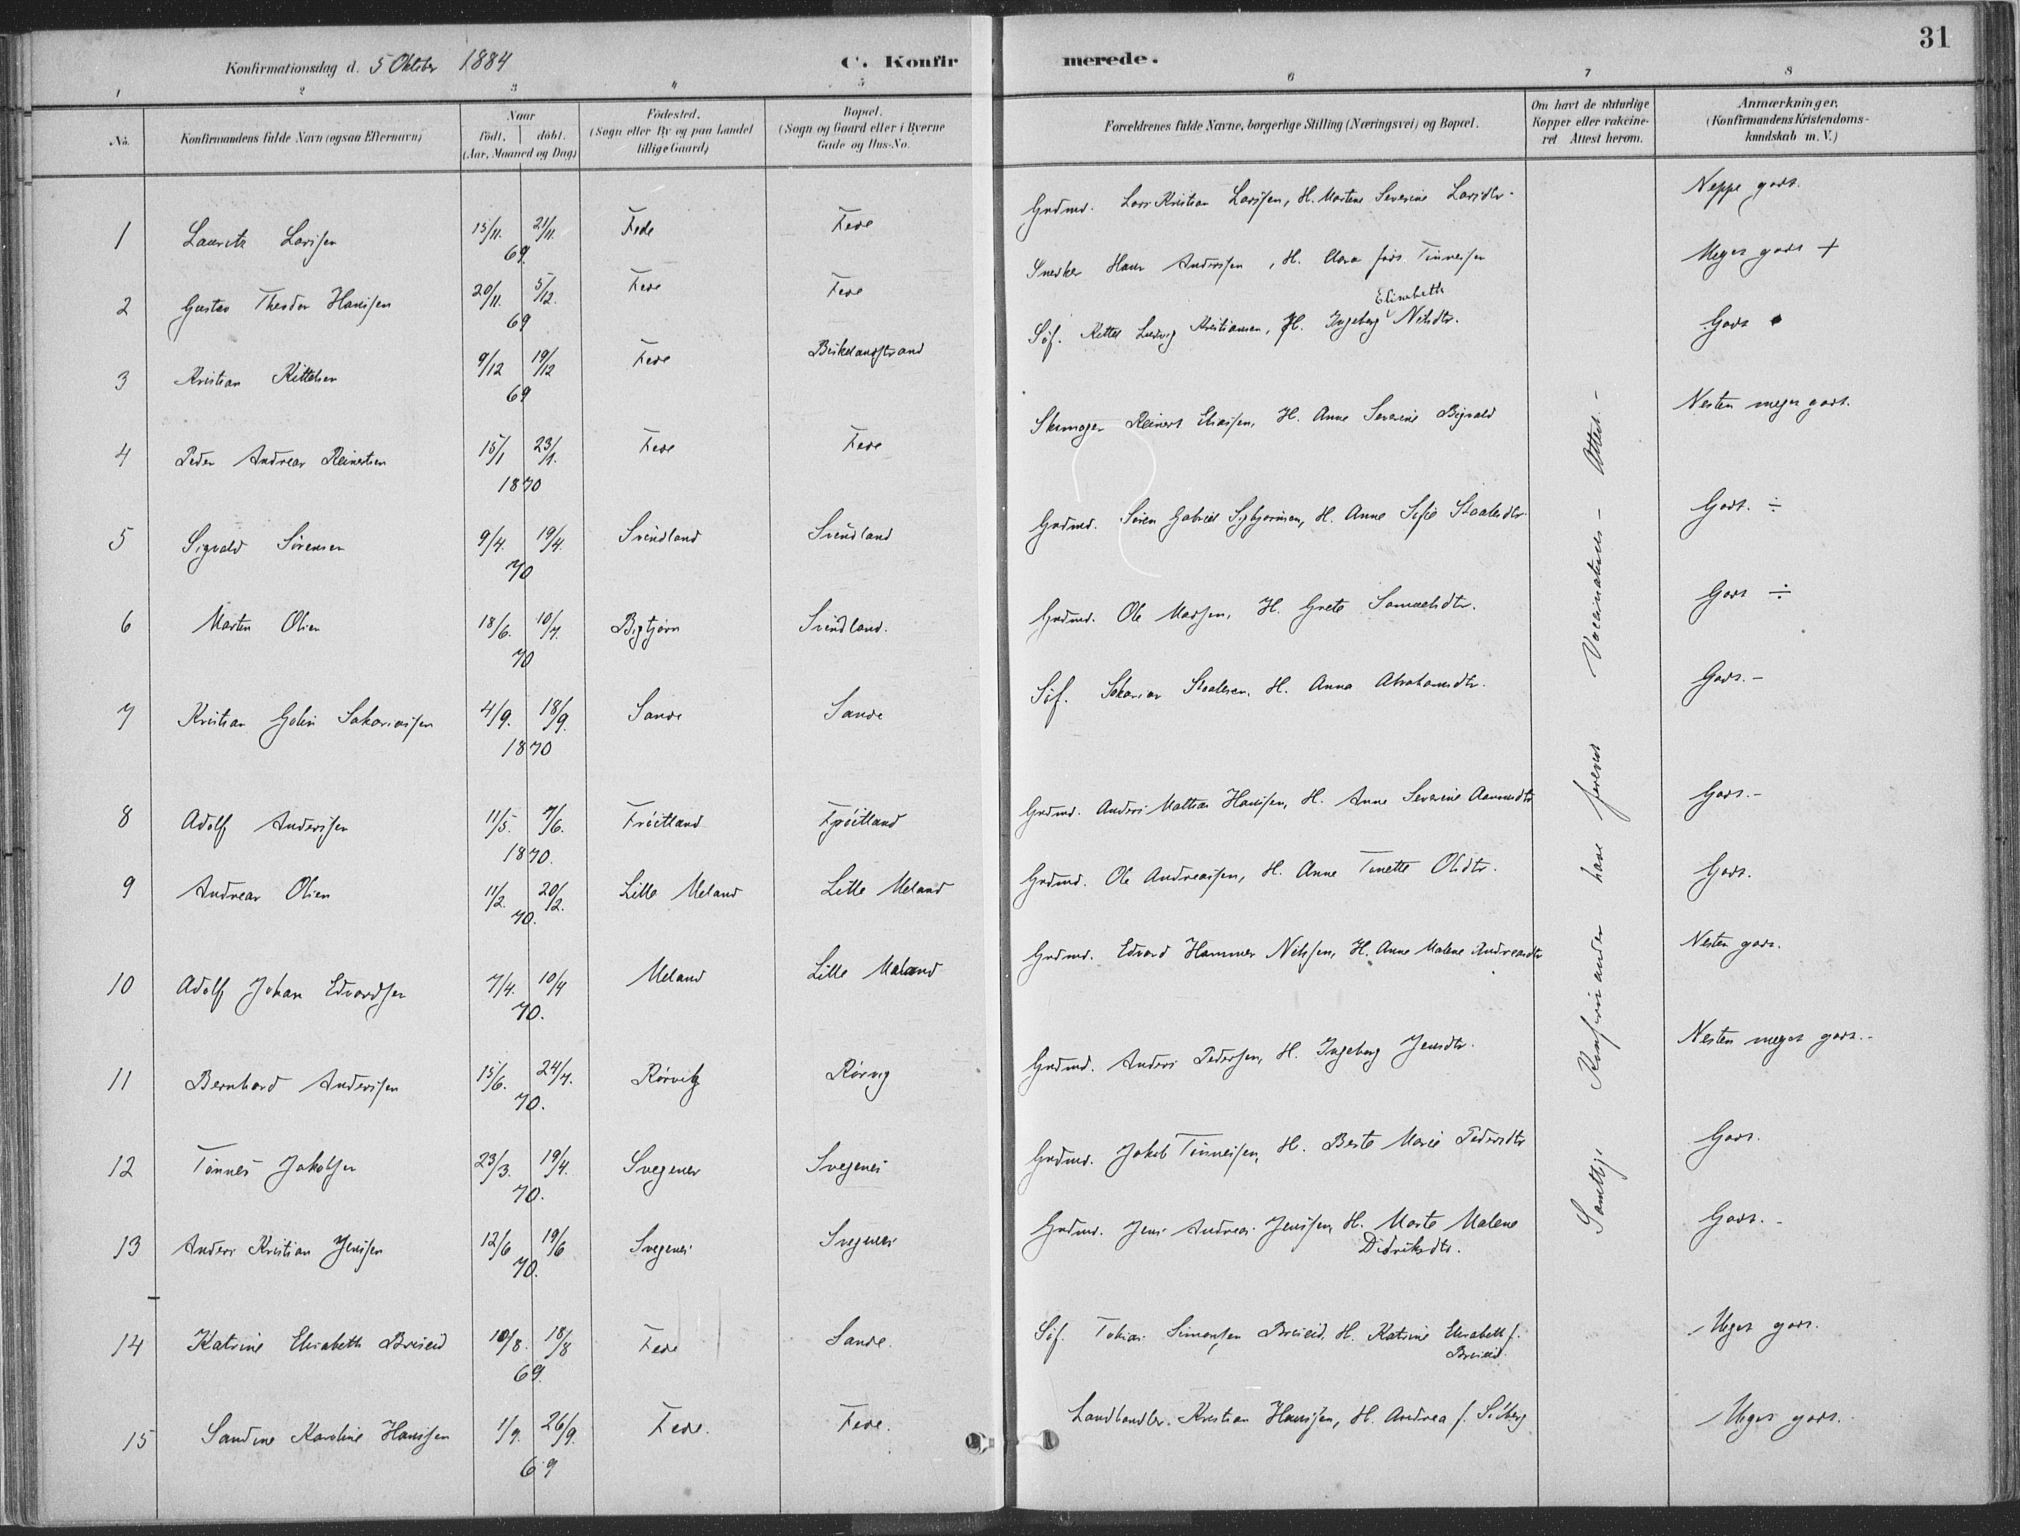 31
Konfirmationsdag d. 5 Oktober 1884
C. Konfirmerede.
1 2 3 4 5 6 7 8
No. Konfirmandens fulde Navn (ogsaa Efternavn) Naar födt, döbt. (Aar, Maaned og Dag) Födested. (Sogn eller By og paa Landet tillige Gaard) Bopæl. (Sogn og Gaard eller i Byerne Gade og Hus-No. Forældrenes fulde Navne, borgerlige Stilling (Næringsvei) og Bopæl. Om havt de naturlige Kopper eller vakcineret Attest herom. Anmærkninger. (Konfirmandens Kristendomskundskab m. V.)
1 Lauritz Larssen 15/11. 21/11. 69. Fede Fede Grdmd. Lars Kristian Larssen, H. Martine Severine Larsdtr. Neppe godt.
2 Gustav Theodor Hanssen 20/11. 5/12. 69 Fede Fede Snedker Hans Anderssen, H. Clara føds Tønnessen Meget godt +
3 Kristian Kittelsen 9/12 19/12 69 Fede Birkelandstrand Søf. Kittel Ludvig Kristiansen, H. Ingeborg Elisabeth Nilsdtr. Godt
4 Peder Andreas Reinertsen 15/1 23/1. 1870 Fede Fede Skomager Reinert Eliassen, H. Anne Severine Sigvald Nesten meget godt.
5 Sigvald Sørensen 9/4. 19/4. 70 Svindland Svindland Grdmd. Søren Gabriel Sigbjørnsen, H. Anne Sofie Staalesdtr. Godt. ÷
6 Morten Olsen 18/6. 10/7. 70 Bigtjørn Svindland. Grdmd. Ole Madssen, H. Grete Samuelsdtr. Godt ÷
7 Kristian Golin Sakariassen 4/9. 18/9. 1870 Sande Sande Søf. Sakarias Staalesen, H. Anna Abrahamsdtr. Godt. -
8 Adolf Anderssen 11/5. 7/6. 1870. Frøitland Frøitland Grdmd. Anders Mathias Hanssen, H. Anne Severine Aanundsdtr Godt. -
9 Andreas Olsen 11/2. 20/2. 70. Lille Meland Lille Meland Grdmd. Ole Andreassen, H. Anne Tonette Olsdtr. Godt.
10 Adolf Johan Edvardsen 7/4. 10/4 70. Meland Lille Meland Grdmd. Edvard Hammer Nilssen, H. Anne Malene Andreasdtr Nesten godt.
11 Bernhard Anderssen 15/6. 24/7. 70. Rørvig Rørvig Grdmd. Anders Pederssen, H. Ingeborg Jensdtr. Nesten meget godt. -
12 Tønnes Jakobsen 23/3. 19/4. 70. Svegenes Svegenes Grdmd. Jakob Tønnessen, H. Berte Marie Pedersdtr Godt.
13 Anders Kristian Jenssen 12/6 19/6 70. Svegenes Svegenes Grdmd. Jens Andreas Jenssen, H. Marte Malene Didriksdtr. Godt. -
14 Katrine Elisabeth Breieid 10/8. 18/8 69. Fede Sande. Søf. Tobias Simonsen Breieid. H. Katrine Elisabeth f. Breieid. Meget godt.
15 Sandine Karoline Hanssen 1/9. 26/9. 69 Fede. Fede. Landhandler. Kristian Hanssen, H. Andrea f. Siöberg Meget godt.
Samtlige Konfirmander have forevist Vaccinations-Attest. -